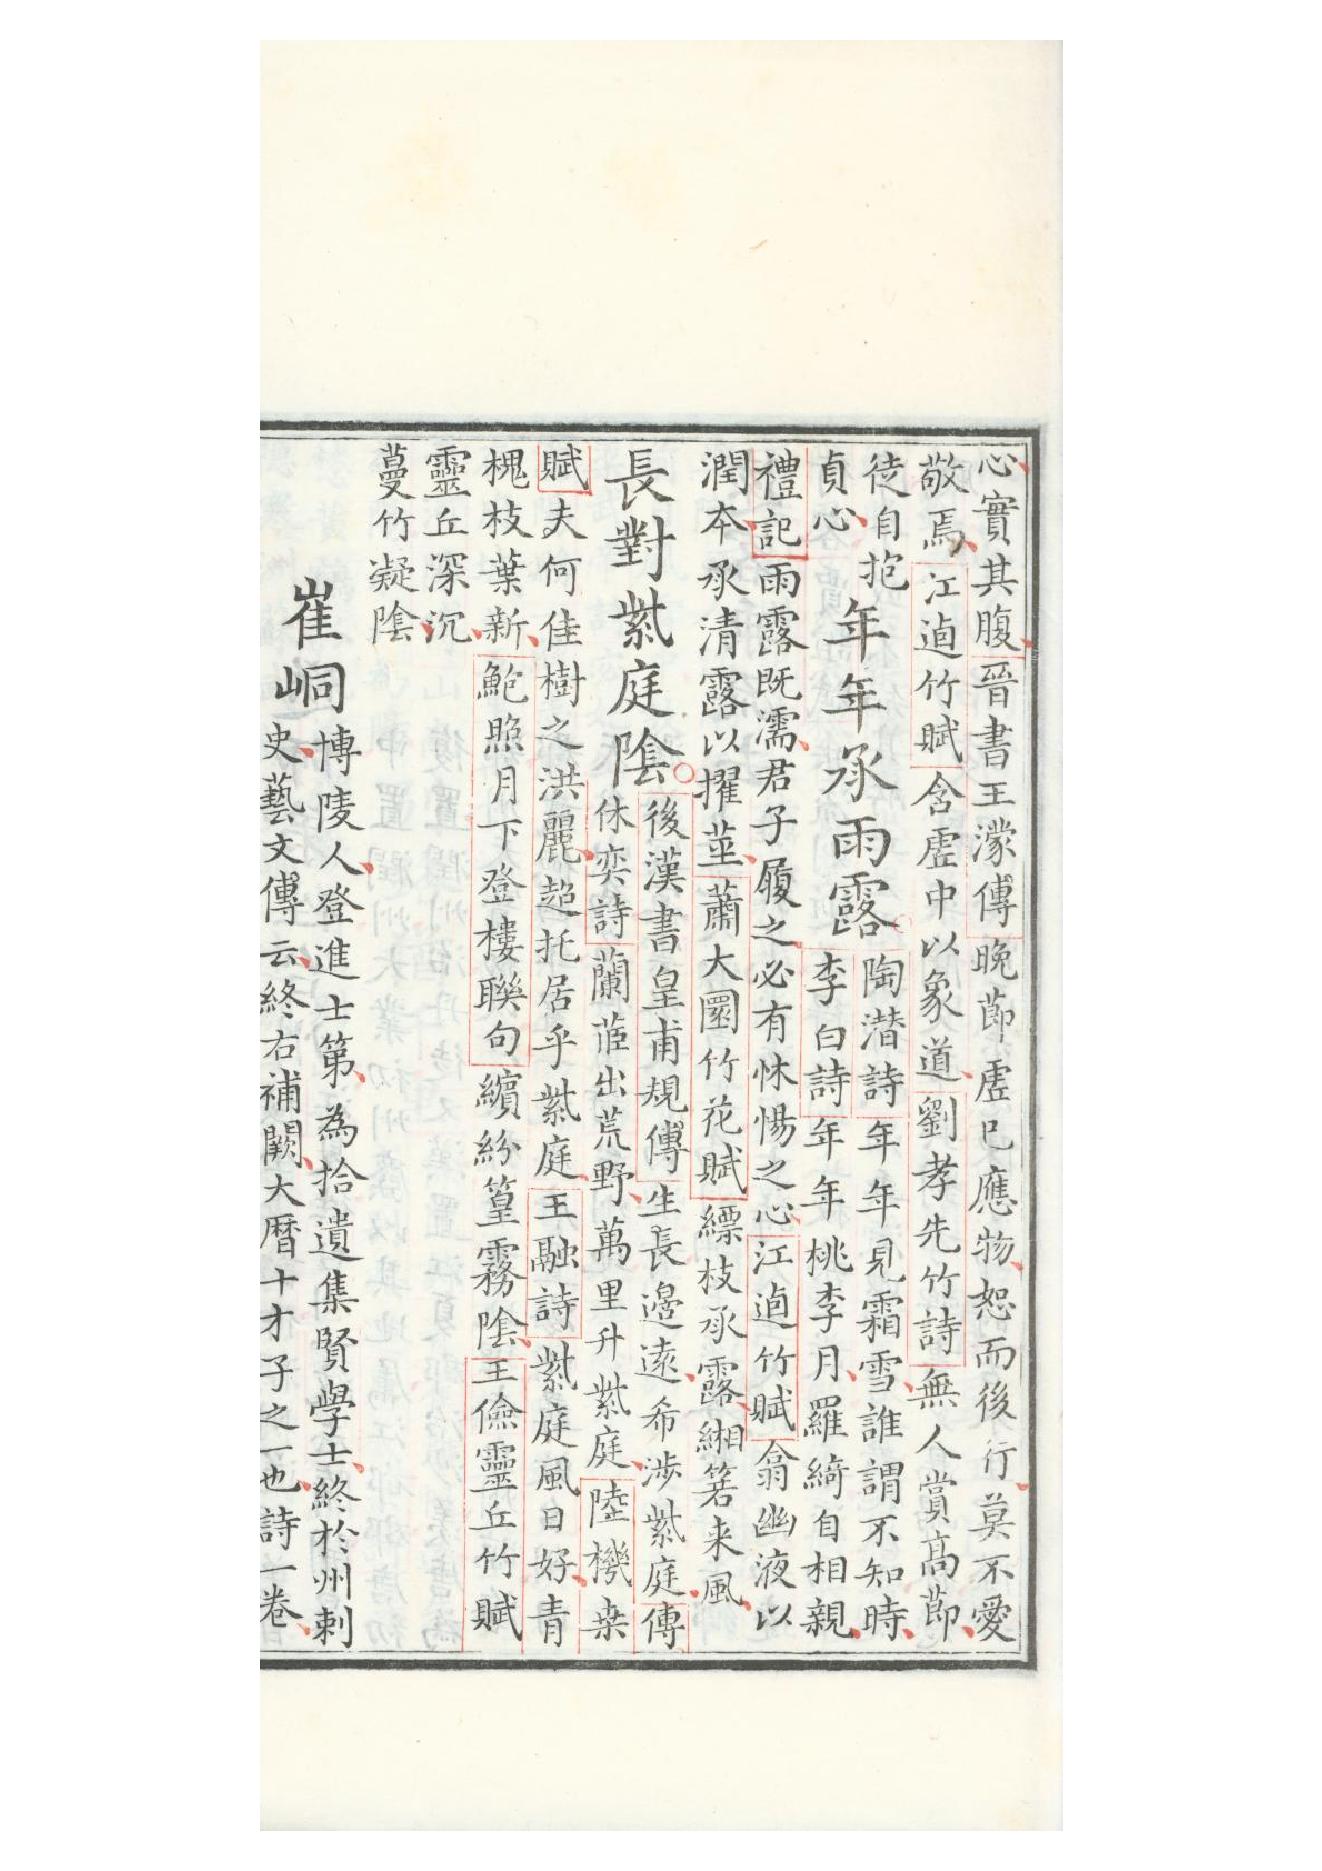 心實其腹晉書王濛傳晚節虛己應物恕而後行莫不愛
敬焉江逌竹賦含虛中以象道劉孝先竹詩無人賞高節
徒自抱
貞心
年年承雨露
陶潛詩年年見霜雪誰謂不知時
李白詩年年桃李月羅綺自相親
禮記雨露既濡君子履之必有怵惕之心江逌竹賦翕幽液以
潤本承清露以擢莖蕭大圜竹花賦縹枝承露緗箬来風
長對紫庭陰
後漢書皇甫規傳生長邊遠希涉紫庭傅
休奕詩蘭茝出荒野萬里升紫庭陸機桑
賦夫何佳樹之洪麗超托居乎紫庭王融詩紫庭風日好青
槐枝葉新鮑照月下登樓聯句繽紛篁霧陰王儉靈丘竹賦
靈丘深沉
蔓竹凝陰
崔峒
博陵人登進士第為拾遺集賢學士終於州刺
史藝文傳云終右補闕大曆十才子之一也詩一卷